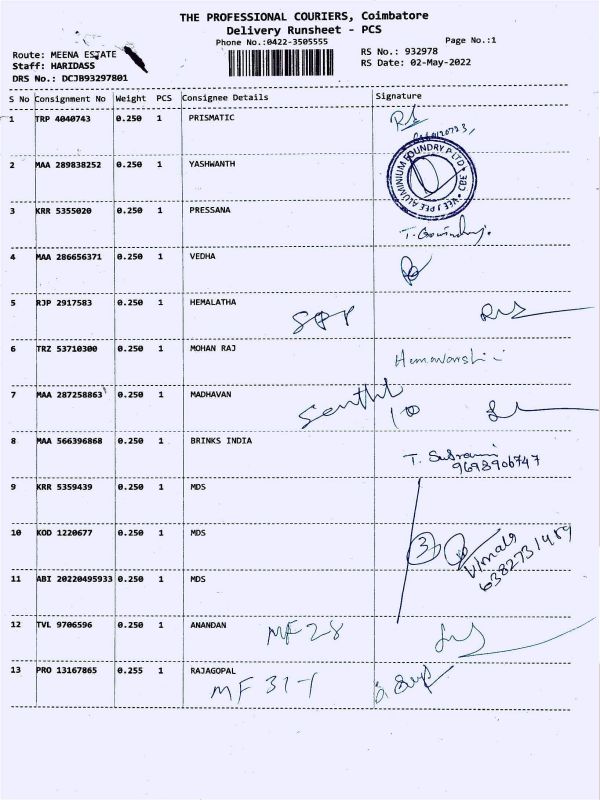 THE PROFESSIONAL COURIERS, Coimbatore
Delivery Runsheet - PCS
Phone No.:0422-3505555
Page No.:1
Route: MEENA ESTATE
Staff: HARIDASS
DRS No.: DCJB93297801
RS No.: 932978
RS Date: 02-May-2022
S No Consignment No Weight PCS Consignee Details Signature
1 TRP 4040743 0.250 1 PRISMATIC
2 MAA 289838252 0.250 1 YASHWANTH
ALUMINIUM FOUNDRY P LTD CBE
3 KRR 5355020 0.250 1 PRESSANA
4 MAA 286656371 0.250 1 VEDHA
5 RJP 2917583 0.250 1 HEMALATHA
6 TRZ 53710300 0.250 1 MOHAN RAJ
7 MAA 287258863 0.250 1 MADHAVAN
8 MAA 566396868 0.250 1 BRINKS INDIA
9698906747
9 KRR 5359439 0.250 1 MDS
10 KOD 1220677 0.250 1 MDS 3
Vimala
6382731489
11 ABI 20220495933 0.250 1 MDS
12 TVL 9706596 0.250 1 ANANDAN MF 28
13 PRO 13167865 0.255 1 RAJAGOPAL
MF 317